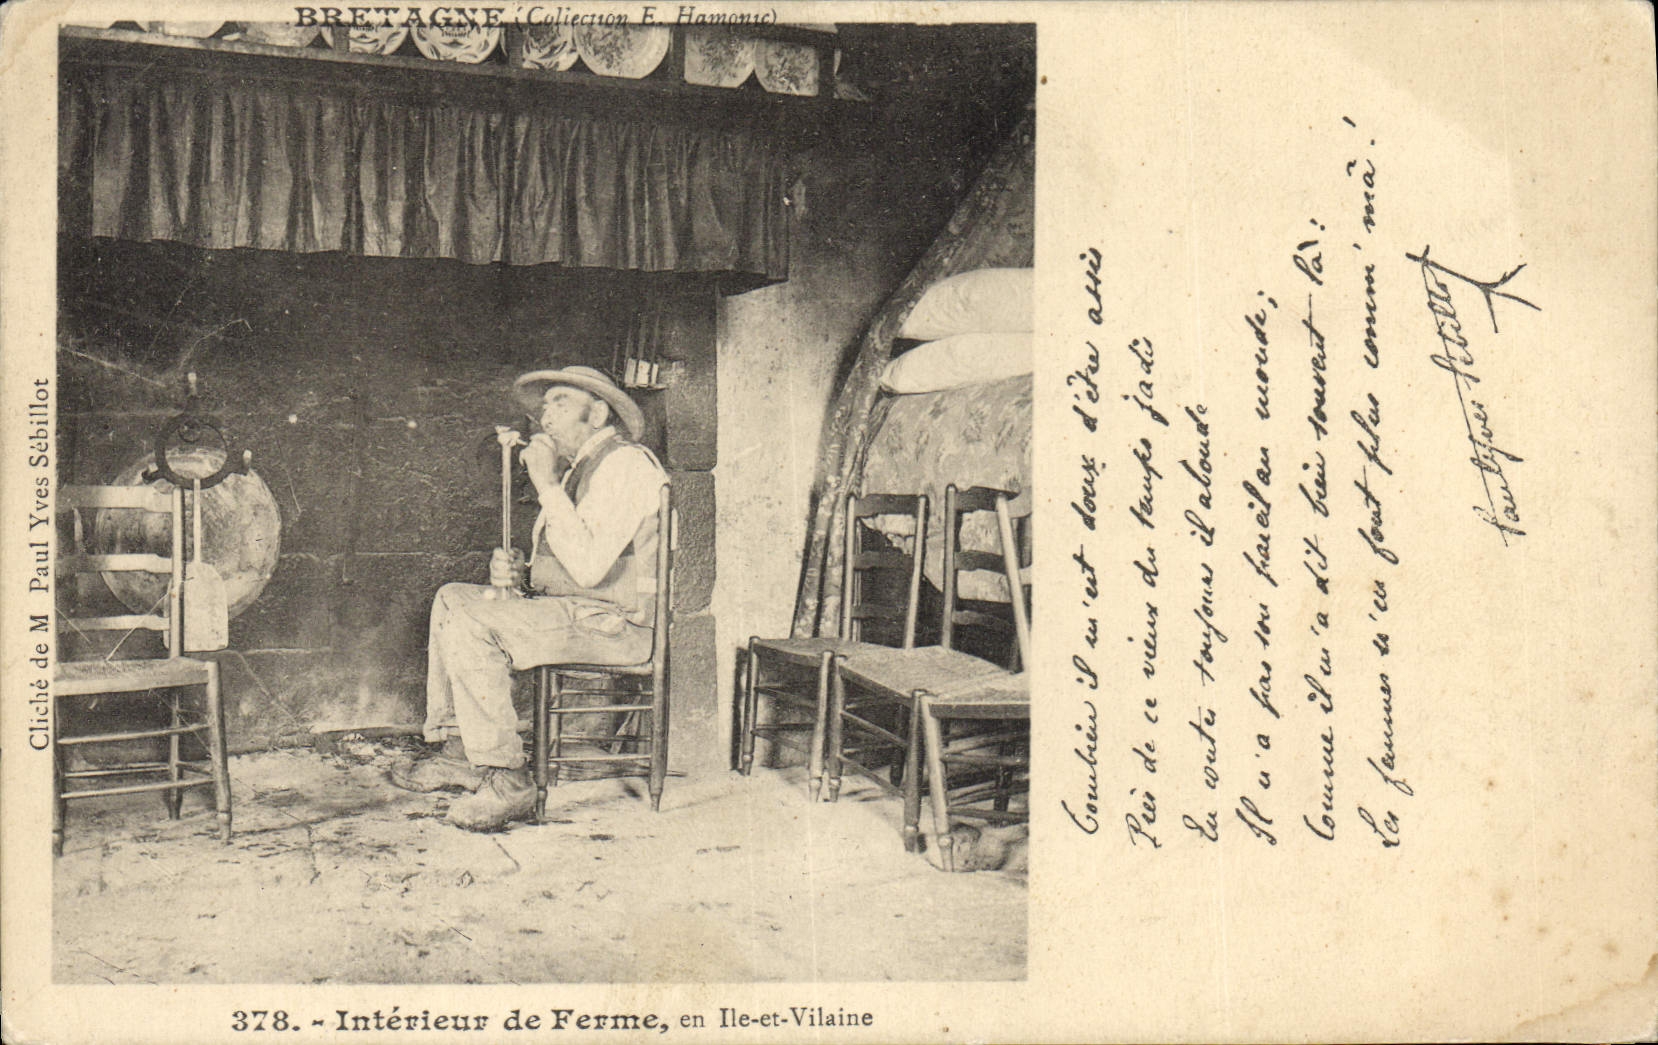 BRETAGNE (Collection E. Hamonic)
Cliché de M Paul Yves Sébillot
378. - Intérieur de Ferme, en Ile-et-Vilaine
Combien il m'est doux d'être assis
Près de ce vieux du temps jadis
En contes toujours il abonde
Il n'a pas son pareil au monde;
Comme il m'a dit bien souvent là:
Les femmes n'en font plus comm' mà!
Paul Yves Sébillot